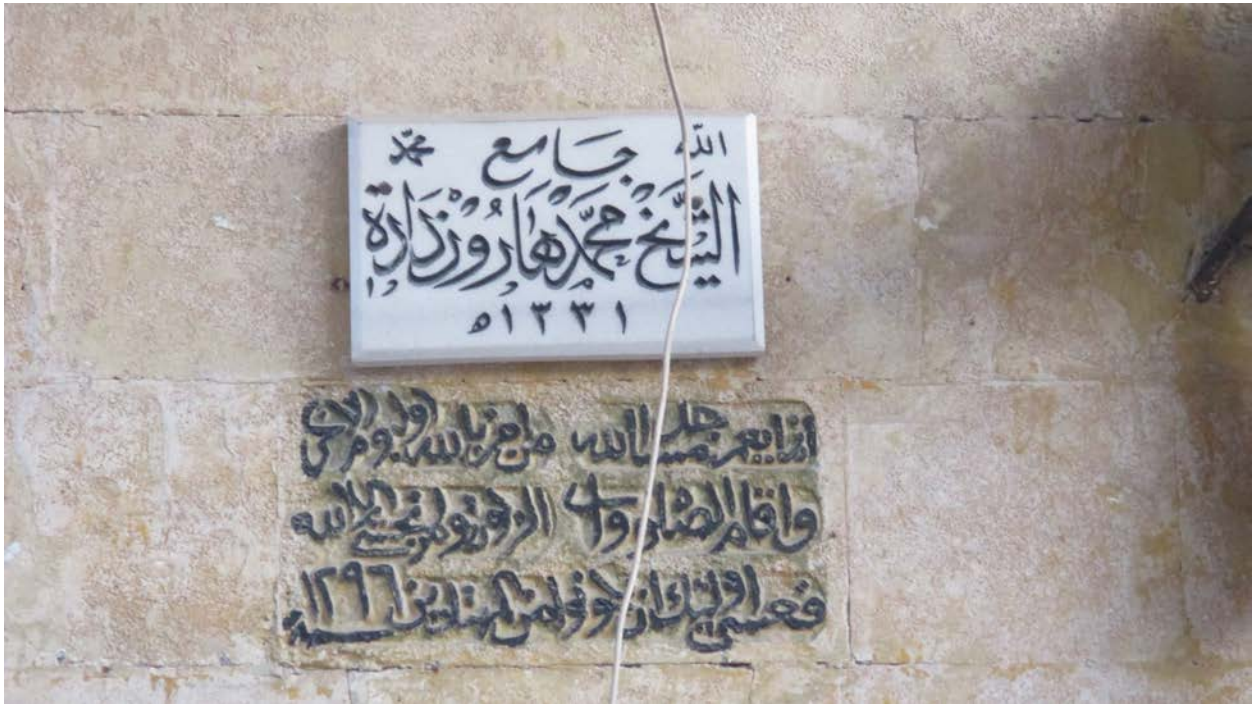 الله جامع محمد
الشَّيْخ مُحَمَّدْ هَارُوْنْ زَدَارَة
١٣٣١ه
انما يعمر مسجد الله من امن بالله واليوم الاخر
واقام الصلوة وات الزكوة ولم يخشى الا الله
فعسى اولئك ان يكونوا من المهتدين ١٢٩٦ سنه